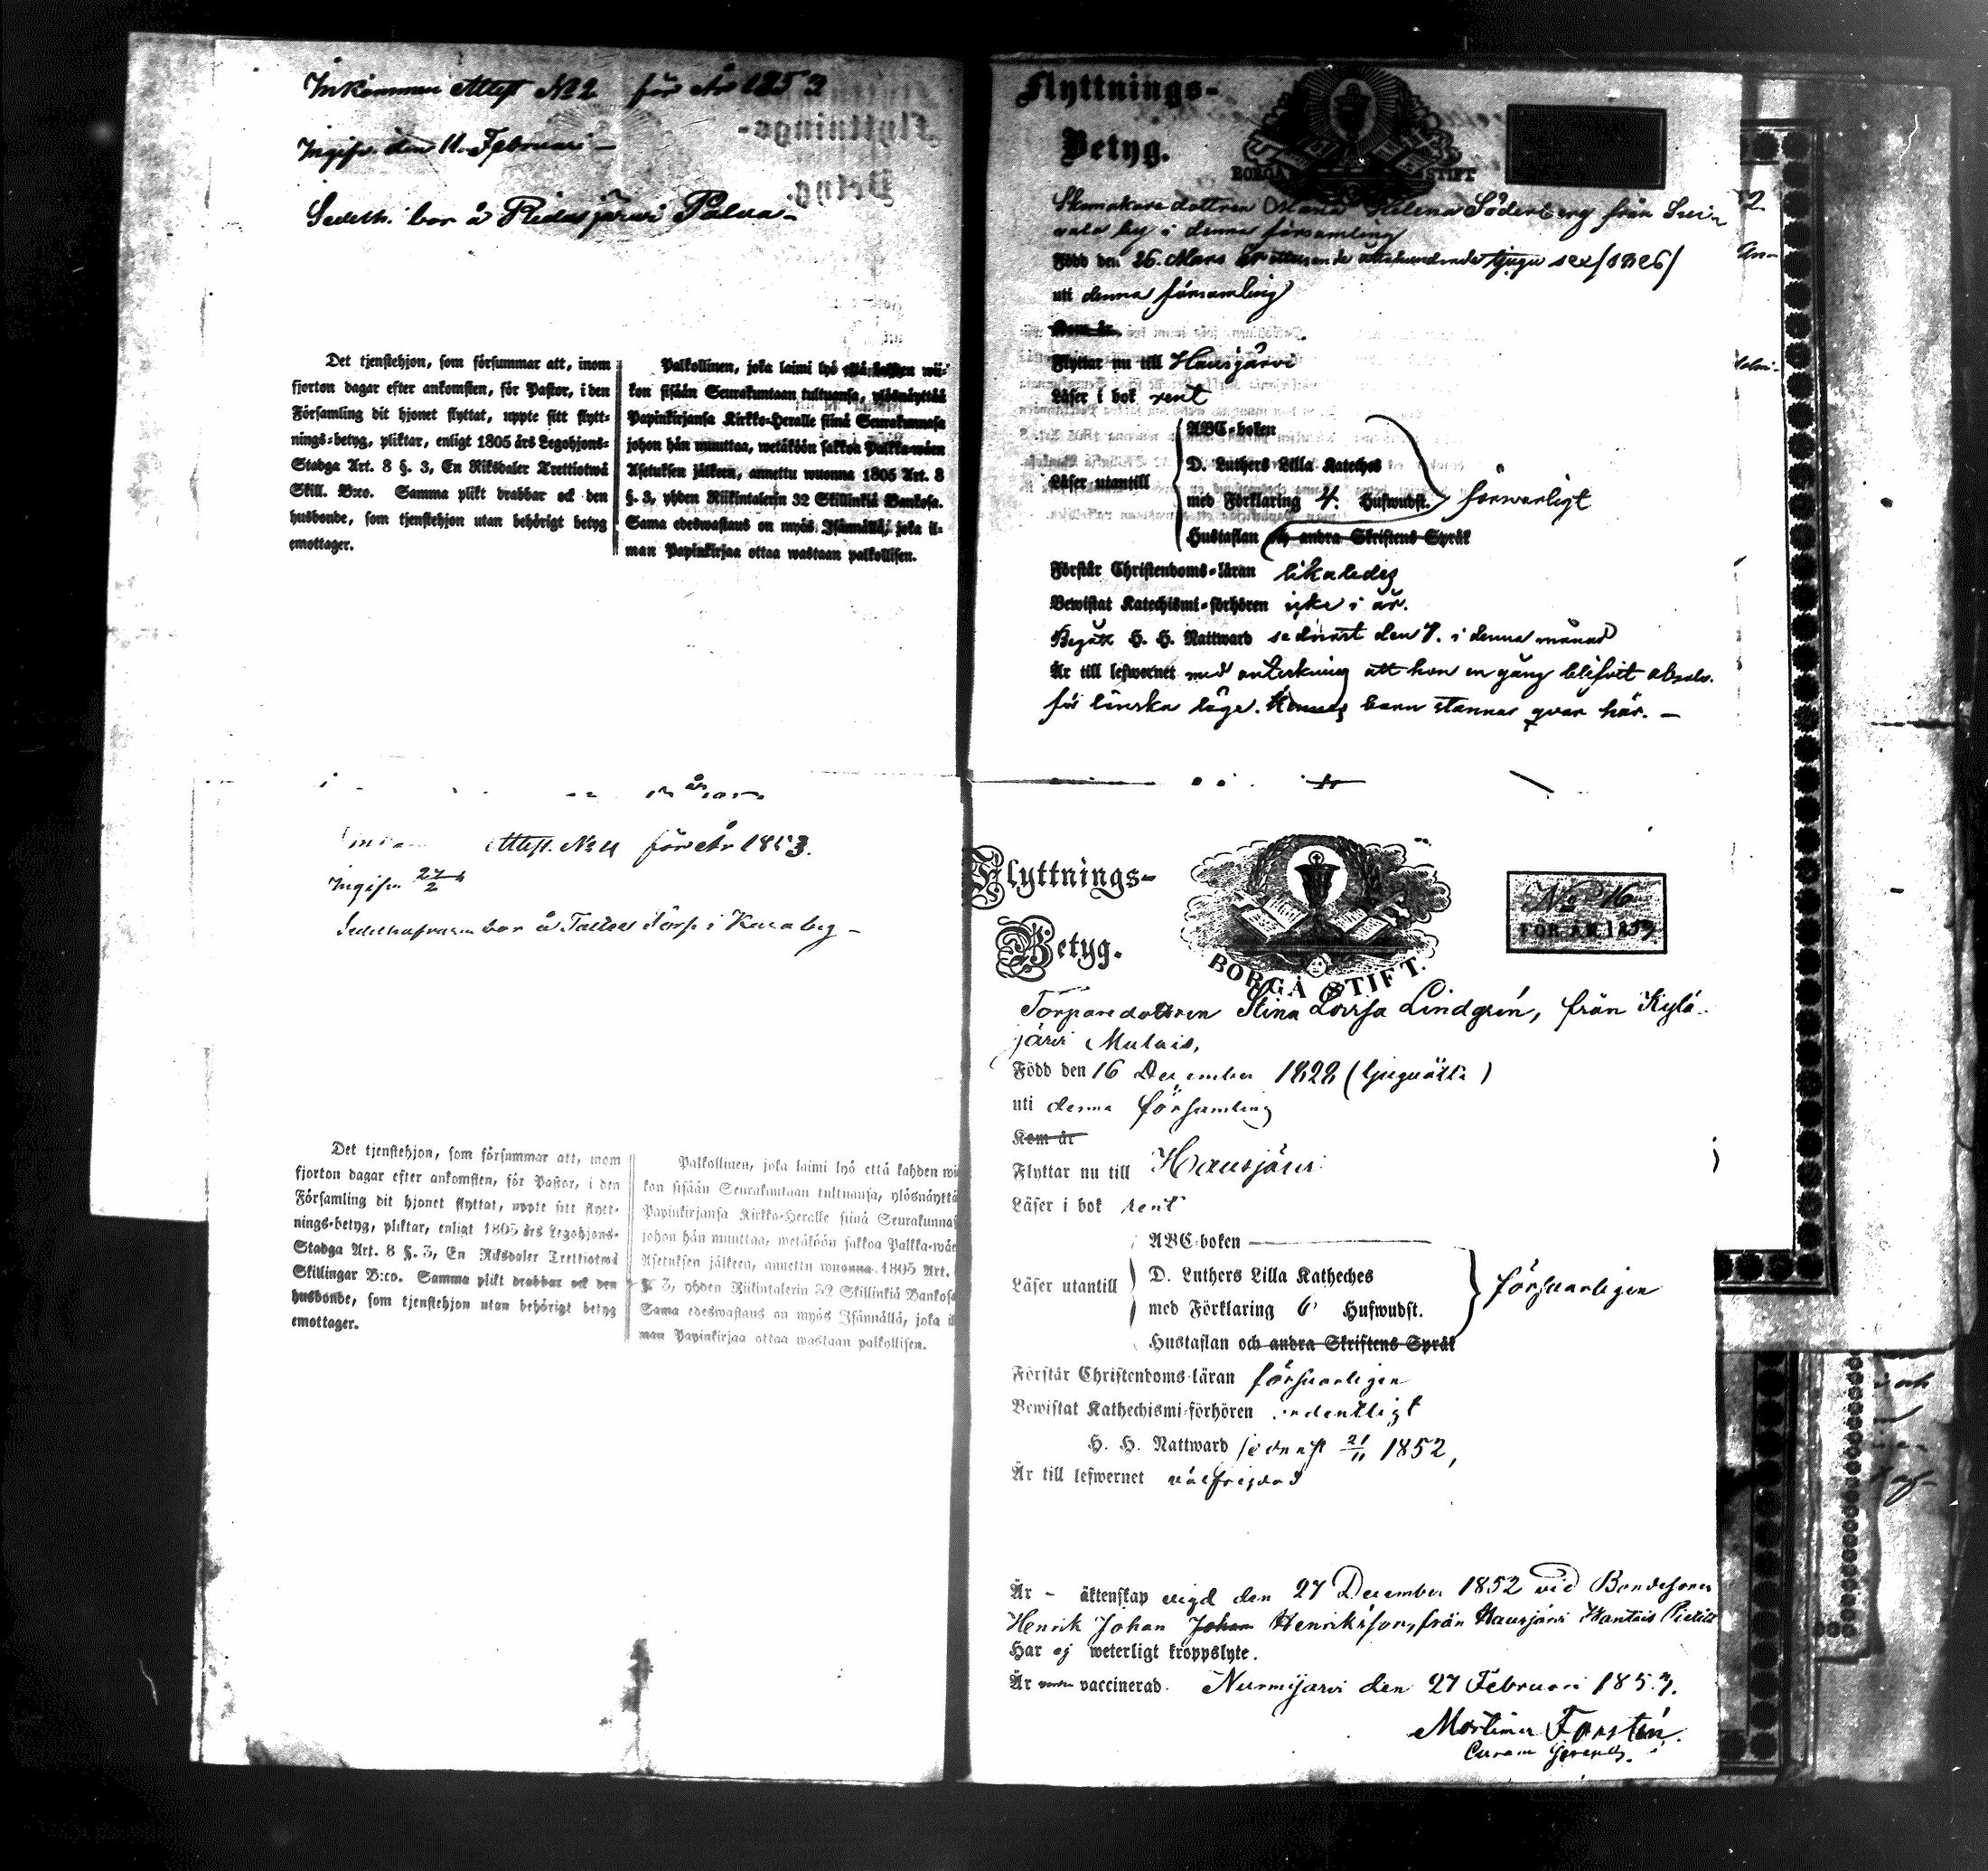 Inkommen Attest No 2 för År 1853
Ingifv. den 11. Februari –
Sedeln. bor å Ridasjärvi Palva –
Det tjenstehjon, som försummar att, inom
fjorton dagar efter ankomsten, för Pastor, i den
Församling dit hjonet flyttat, uppte sitt flytt-
nings-betyg, pliktar, enligt 1805 års Legohjons-
Stadga Art. 8 §. 3, En Riksdaler Trettiotwå
Skill. B:co. Samma plikt drabbar ock den
husbonde, som tjenstehjon utan behörigt betyg
emottager.
Palkollinen, joka laimi lyö että kahden wii-
kon sisään Seurakuntaan tultuansa, ylösnäyttää
Papinkirjansa Kirkko-Heralle siinä Seurakunnasa
johon hän muuttaa, wetäköön sakkoa Palkka-wäen
Asetuksen jälkeen, annettu wuonna 1805 Art. 8
§. 3, yhden Riikintalerin 32 Skillinkiä Bankosa.
Sama edeswastaus on myös Isännällä, joka il-
man Papinkirjaa ottaa wastaan palkollisen.
Flyttnings-
Betyg.
BORGÅ STIFT
Skomakare dottren Maria Helena Söderberg från
by i denna församling
Född den 26. Mars år ettusende åttahundrade tjugu sex /1826/
uti denna församling
Kom år
Flyttar nu till Hausjärvi
Läser i bok rent
Läser utantill
ABC-boken
D. Luthers Lilla Kateches
med Förklaring 4. Hufwudst.
Hustaflan och andra Skriftens Språk
försvarligt
Förstår Christendoms-läran likaledes
Bewistat Katechismi-förhören icke i år.
Begått H. H. Nattward sednast den 7. i denna månad
Är till lefwernet med anteckning att hon en gång blifvit absolv.
för lönska läge. Hennes barn stannar qvar här. –
Attest. No 4 för År 1853.
Ingifv 27/2
bor å Torp i Kara by –
Det tjenstehjon, som försummar att, inom
fjorton dagar efter ankomsten, för Pastor, i den
Församling dit hjonet flyttat, uppte sitt flytt-
nings-betyg, pliktar, enligt 1805 års Legohjons-
Stadga Art. 8 §. 3, En Riksdaler Trettiotwå
Skillingar B:co. Samma plikt drabbar ock den
husbonde, som tjenstehjon utan behörigt betyg
emottager.
Palkollinen, joka laimi lyö että kahden wii
kon sisään Seurakuntaan tultuansa, ylösnäyttä
Papinkirjansa Kirkko-Heralle siinä Seurakunnas
johon hän muuttaa, wetäköön sakkoa Palkka-wäe
Asetuksen jälkeen, annettu wuonna 1805 Art.
§. 3, yhden Riikintalerin 32 Skillinkiä Bankosa
Sama edeswastaus on myös Isännällä, joka il
man Papinkirjaa ottaa wastaan palkollisen.
Flyttnings-
Betyg.
BORGÅ STIFT.
No 16
FÖR ÅR 1853
Torparedottren Stina Lovisa Lindgrén, från Kylä-
järvi Mulais,
Född den 16 December 1828 (tjuguåtta)
uti denna församling
Kom år
Flyttar nu till Hausjärvi
Läser i bok rent
Läser utantill
ABC-boken
D. Luthers Lilla Katheches
med Förklaring 6 Hufwudst.
Hustaflan och andra Skriftens Språk
försvarligen
Förstår Christendoms-läran försvarligen
Bewistat Kathechismi-förhören ordentligt
H. H. Nattward sednast 21/11 1852,
Är till lefwernet välfrejdad
Är – äktenskap vigd den 27 December 1852 vid Bondesonen
Henrik Johan Johan Henriksson, från Hausjärvi
Har ej weterligt kroppslyte.
Är vaccinerad. Nurmijärvi den 27 Februari 1853.
Mortimer Forstén.
Curam Gerens.